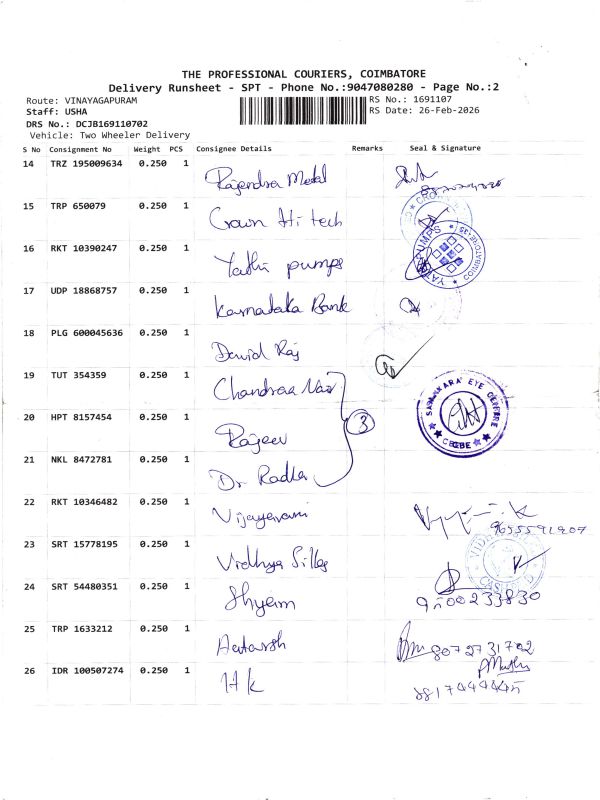 THE PROFESSIONAL COURIERS, COIMBATORE
Delivery Runsheet - SPT - Phone No.:9047080280 - Page No.:2
Route: VINAYAGAPURAM
Staff: USHA
DRS No.: DCJB169110702
Vehicle: Two Wheeler Delivery
RS No.: 1691107
RS Date: 26-Feb-2026
S No Consignment No Weight PCS Consignee Details Remarks Seal & Signature
14 TRZ 195009634 0.250 1 Rajendra Metal
15 TRP 650079 0.250 1 Crown Hi tech
16 RKT 10390247 0.250 1 Yathi pumps
YATHI PUMPS COIMBATORE-35
17 UDP 18868757 0.250 1 Karnataka Bank
18 PLG 600045636 0.250 1 David Raj
19 TUT 354359 0.250 1 Chandraa Nair
20 HPT 8157454 0.250 1 Rajeev
3
SANKARA EYE CENTRE
CBE
21 NKL 8472781 0.250 1 Dr Radha
22 RKT 10346482 0.250 1 Vijayarani
9655591907
23 SRT 15778195 0.250 1 Vidhya Silks
24 SRT 54480351 0.250 1 Shyam
9500233830
25 TRP 1633212 0.250 1 Aatarsh
8072731702
26 IDR 100507274 0.250 1 H k